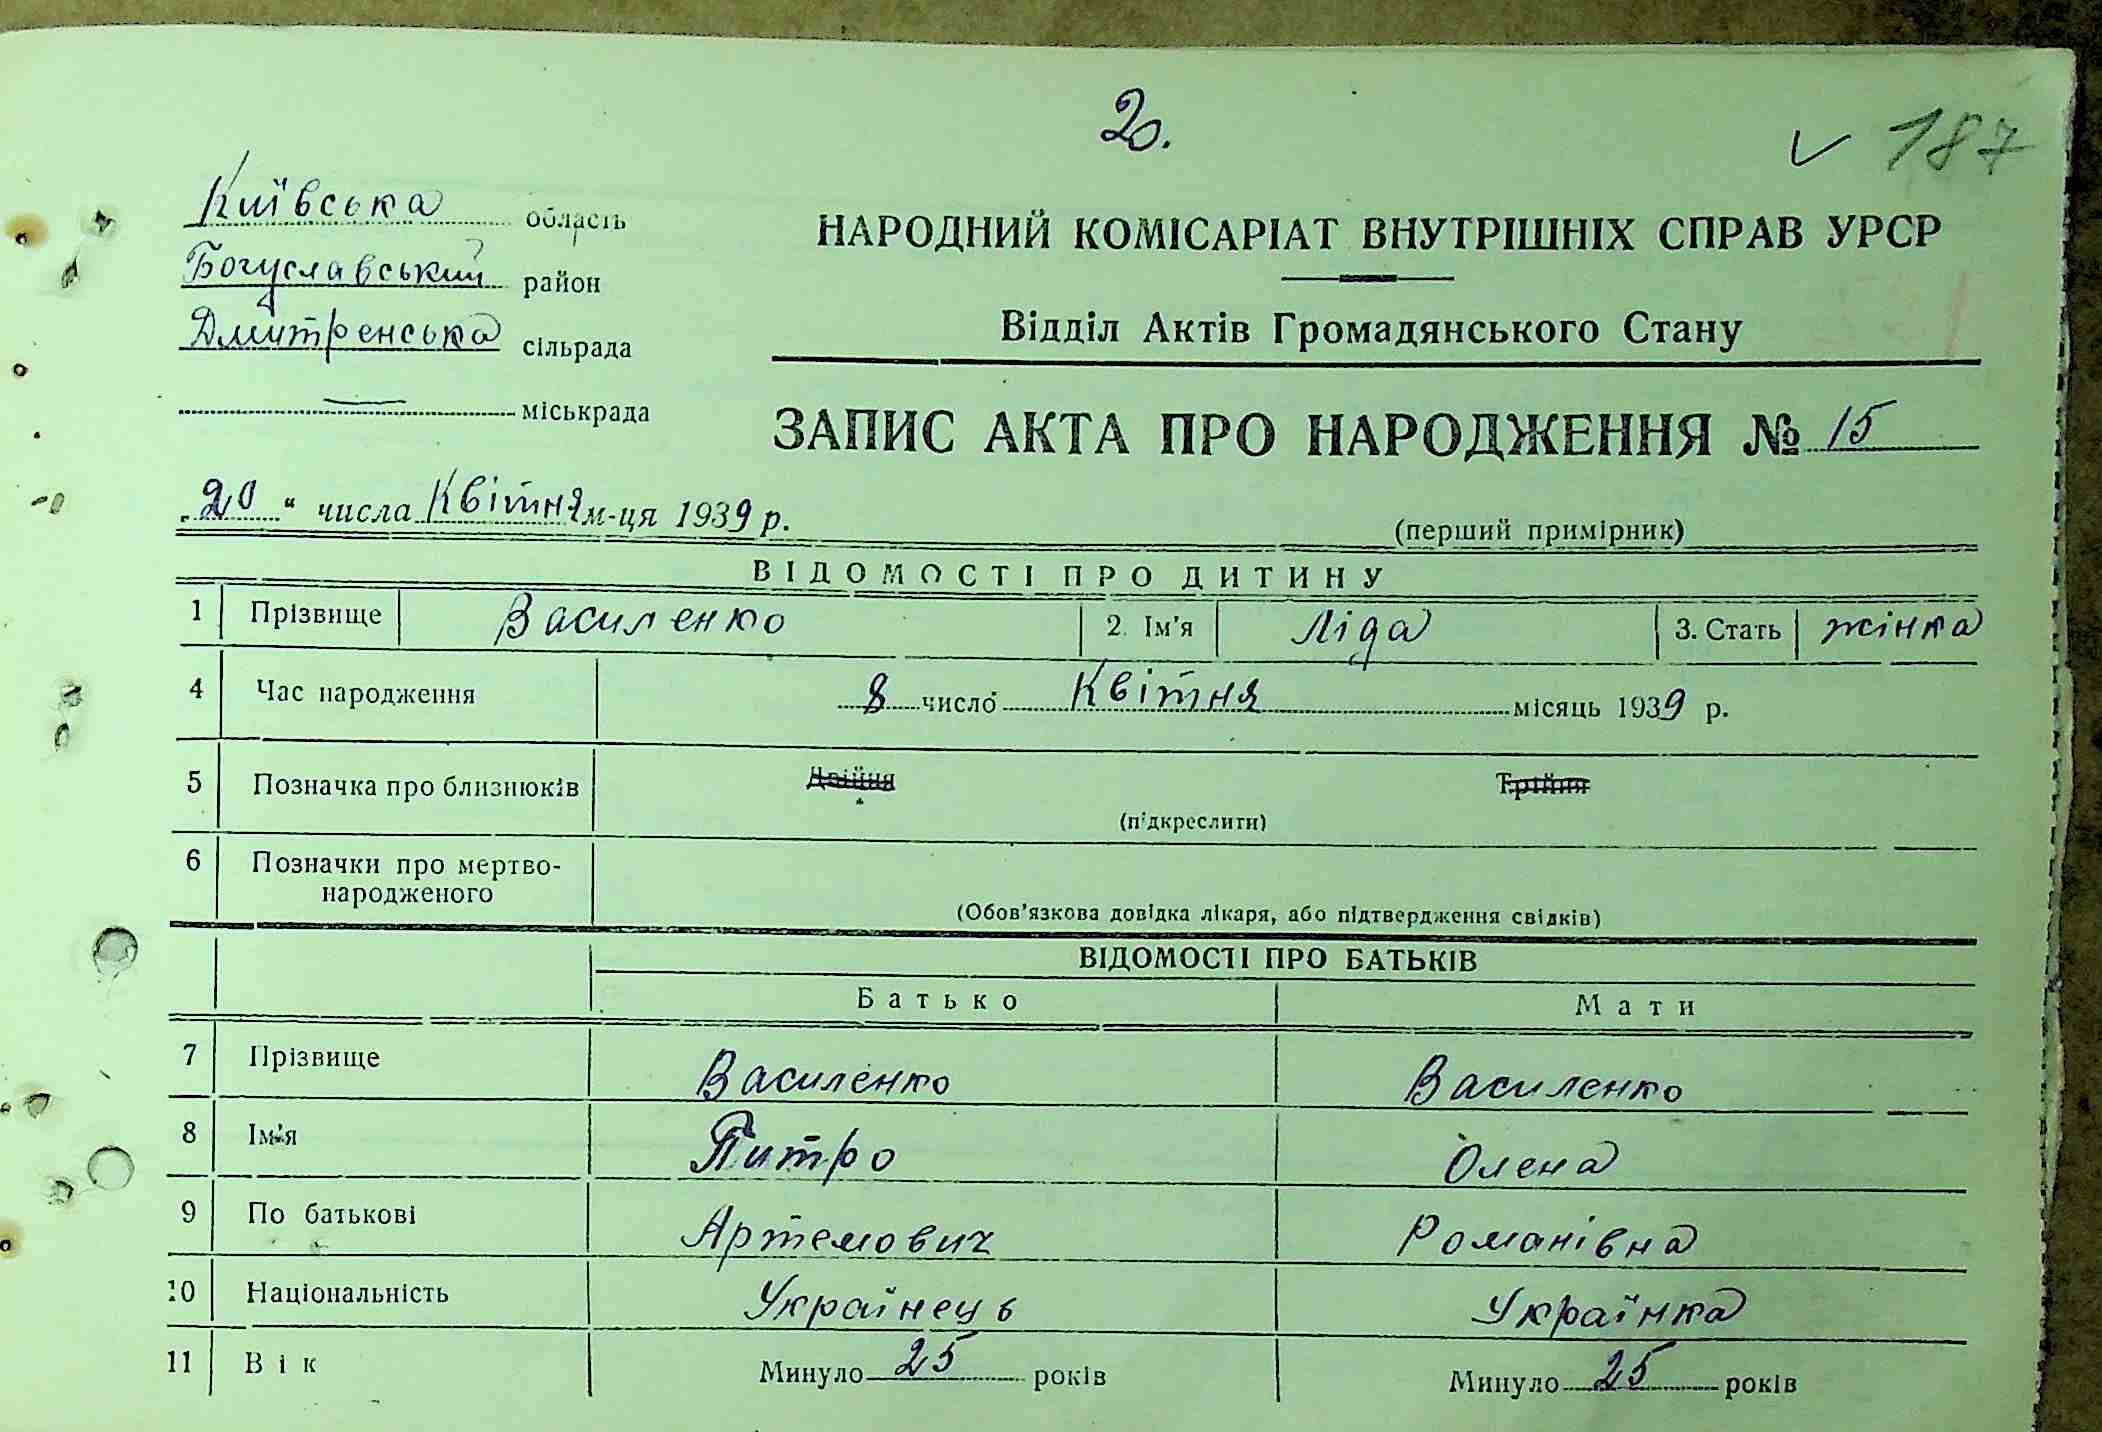 20.
187
Київська область
Богуславський район
Дмитренська сільрада
міськрада
НАРОДНИЙ КОМІСАРІАТ ВНУТРІШНІХ СПРАВ УРСР
Відділ Актів Громадянського Стану
ЗАПИС АКТА ПРО НАРОДЖЕННЯ № 15
„20“ числа Квітня м-ця 1939 р.
(перший примірник)
ВІДОМОСТІ ПРО ДИТИНУ
1 Прізвище Василенко 2. Ім'я Ліда 3. Стать жінка
4 Час народження 8 число Квітня місяць 1939 р.
5 Позначка про близнюків Двійня Трійня
(підкреслити)
6 Позначки про мертво-
народженого
(Обов'язкова довідка лікаря, або підтвердження свідків)
ВІДОМОСТІ ПРО БАТЬКІВ
Батько Мати
7 Прізвище Василенко Василенко
8 Ім'я Питро Олена
9 По батькові Артемович Романівна
10 Національність Українець Українка
11 Вік Минуло 25 років Минуло 25 років